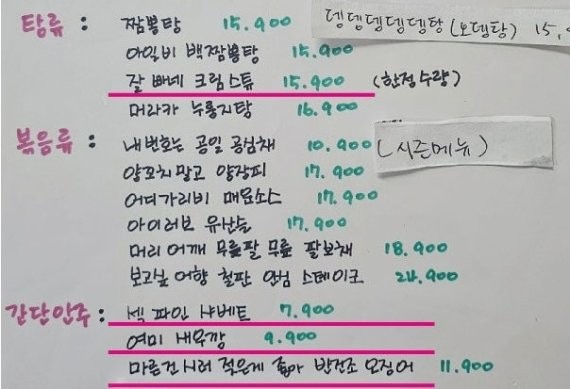 뎅뎅뎅뎅뎅탕 (오뎅탕) 15,
탕류 : 짬뽕탕 15.900
아일비 백짬뽕탕 15.900
잘 빠네 크림스튜 15.900 (한정수량)
머라카 누룽지탕 16.900
볶음류 : 내번호는 공일 공심채 10.900 (시즌메뉴)
양꼬치말고 양장피 17.900
어디가리비 매운소스 17.900
아이러브 유산슬 17.900
머리 어깨 무릎팔 무릎 팔보채 18.900
보고싶 어향 철판 안심 스테이크 24.900
간단안주 : 섹 파인 샤베트 7.900
연미 새우깡 9.900
마른건 시러 젖은게 좋아 반건조 오징어 11.900